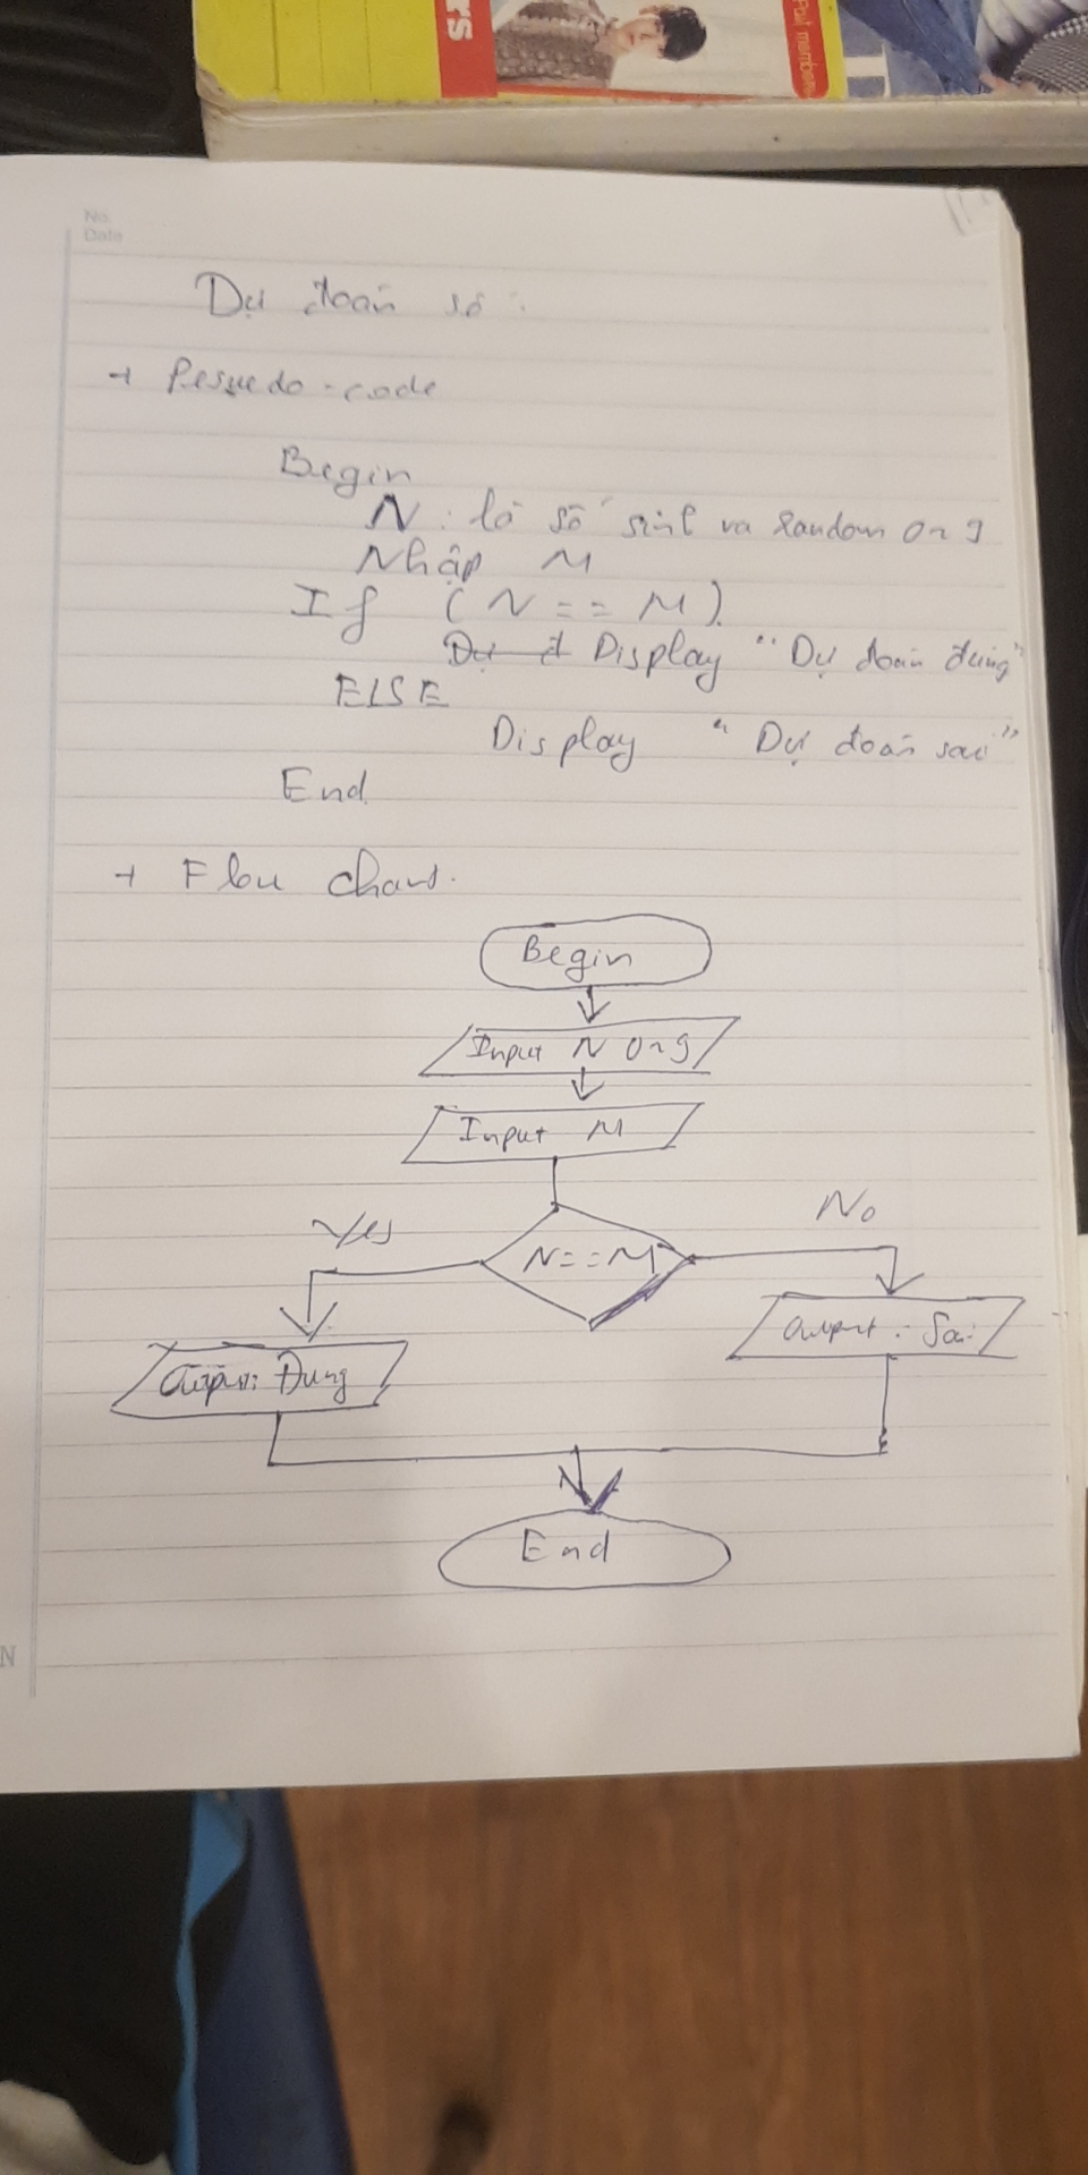 RS
Paul
No
Date
Dự đoán số :
+ Pesuedo-code
Begin
N : là số sinh va Random 0~9
Nhập M
If (N == M)
Dự đ Display "Dự đoán đúng"
ELSE
Display "Dự đoán sai"
End
+ Flow chart.
Begin
Input N 0~9
Input M
Yes
No
N==M
Output : Sai
Output: Đung
End
N